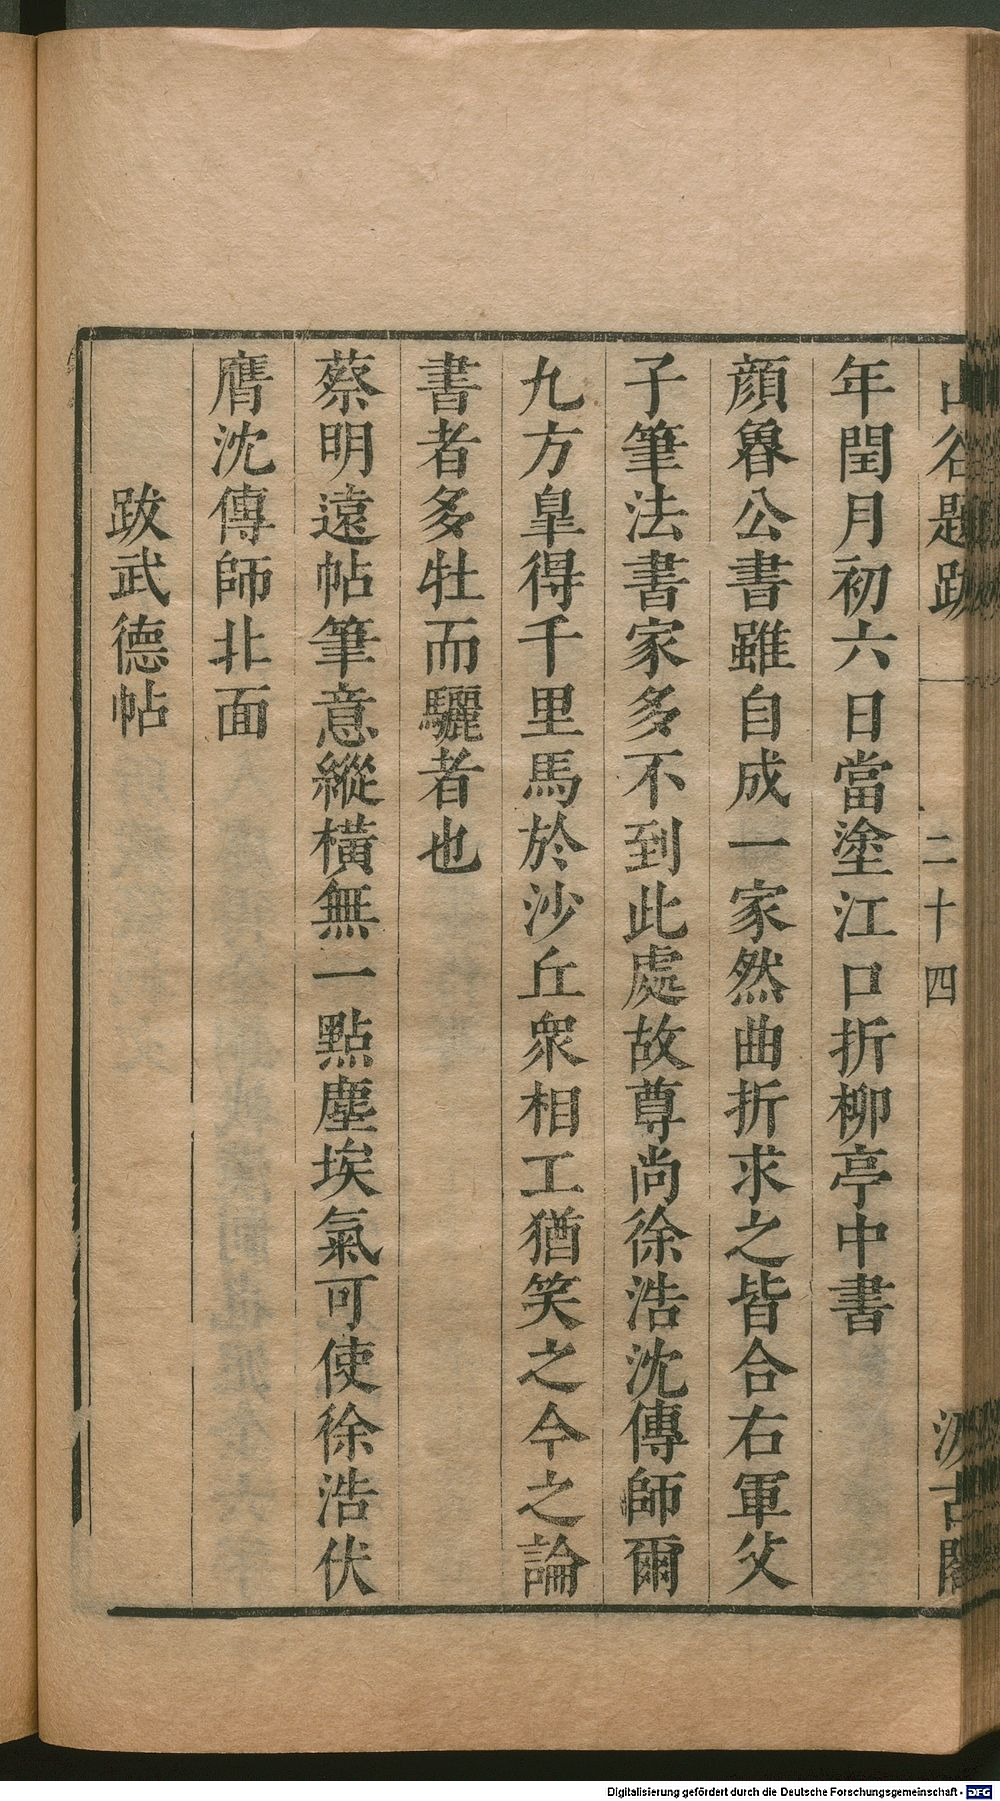 山谷題跋 二十四 汲古閣
年閏月初六日當塗江口折柳亭中書
顏魯公書雖自成一家然曲折求之皆合右軍父
子筆法書家多不到此處故尊尚徐浩沈傳師爾
九方皐得千里馬於沙丘衆相工猶笑之今之論
書者多牡而驪者也
蔡明遠帖筆意縱橫無一點塵埃氣可使徐浩伏
膺沈傳師北面
跋武德帖
Digitalisierung gefördert durch die Deutsche Forschungsgemeinschaft - DFG